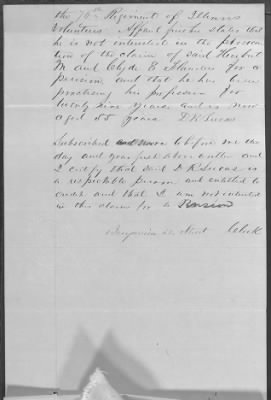 the 76th Regiment of Illinois
Volunteers. Affiant further states that
he is not interested in the prosecu
tion of the claim of said Herbert
M. and Clyde E. for a
pension, and that he has been
practising his profession for
twenty nine years and is now
aged 55 years D. R. Lucas
Subscribed and sworn to before me the
day and year first above written and
I certify that said D. R. Lucas is
a respectable person and entitled to
credit and that I am not interested
in this claim for a Pension
Clerk